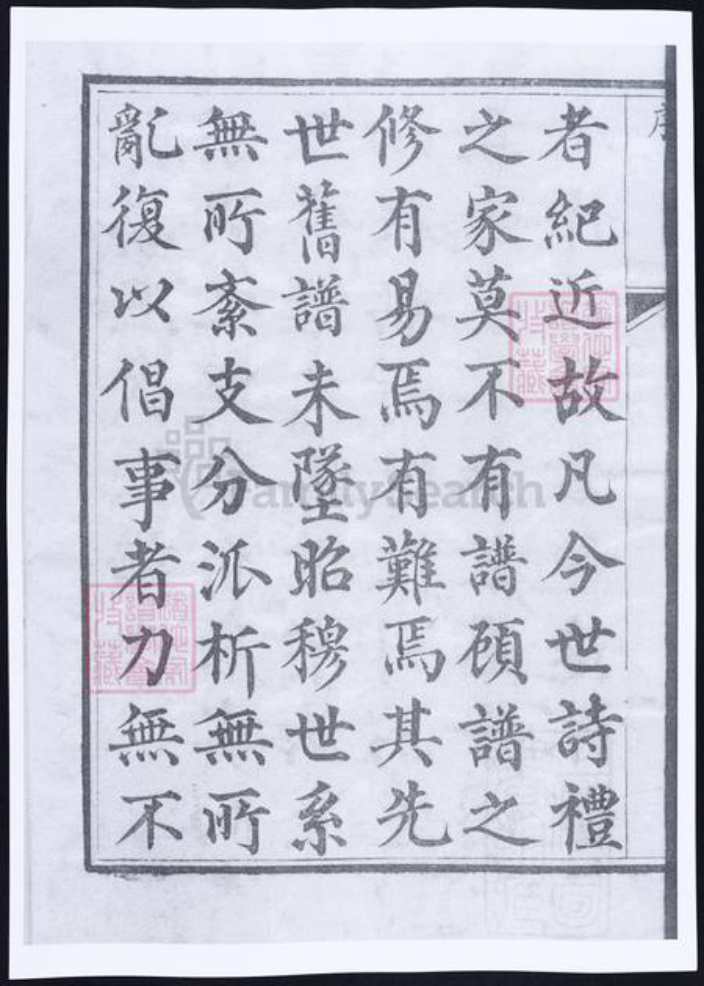 者紀近故凡今世詩禮
之家莫不有譜顧譜之
修有易焉有難焉其先
世舊譜未墜昭穆世系
無所紊支分派析無所
亂復以倡事者力無不
FamilySearch